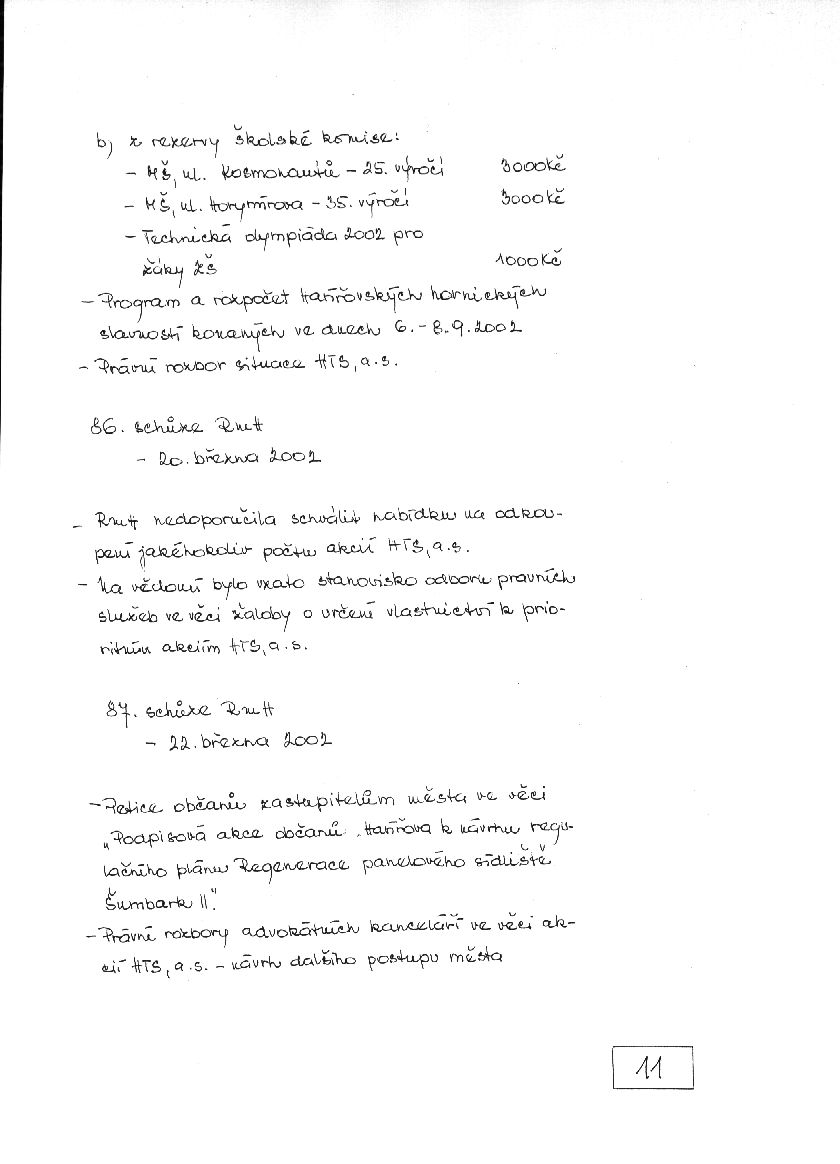 b) z rezervy školské komise:
- MŠ, ul. Kosmonautů - 25. výročí 3000Kč
- MŠ, ul. Horymírova - 35. výročí 3000Kč
- Technická olympiáda 2002 pro
žáky ZŠ 1000Kč
- Program a rozpočet Havířovských hornických
slavností konaných ve dnech 6. - 8.9.2002
- Právní rozbor situace HTS, a.s.
86. schůze RmH
- 20. března 2002
- RmH nedoporučila schválit nabídku na odkou-
pení jakéhokoliv počtu akcií HTS, a.s.
- Na vědomí bylo vzato stanovisko odboru právních
služeb ve věci žaloby o určení vlastnictví k prio-
ritním akciím HTS, a.s.
87. schůze RmH
- 22. března 2002
- Petice občanů zastupitelům města ve věci
„Podpisová akce občanů Havířova k návrhu regu-
lačního plánu Regenerace panelového sídliště
Šumbark II."
- Právní rozbory advokátních kanceláří ve věci ak-
cií HTS, a.s. - návrh dalšího postupu města
11